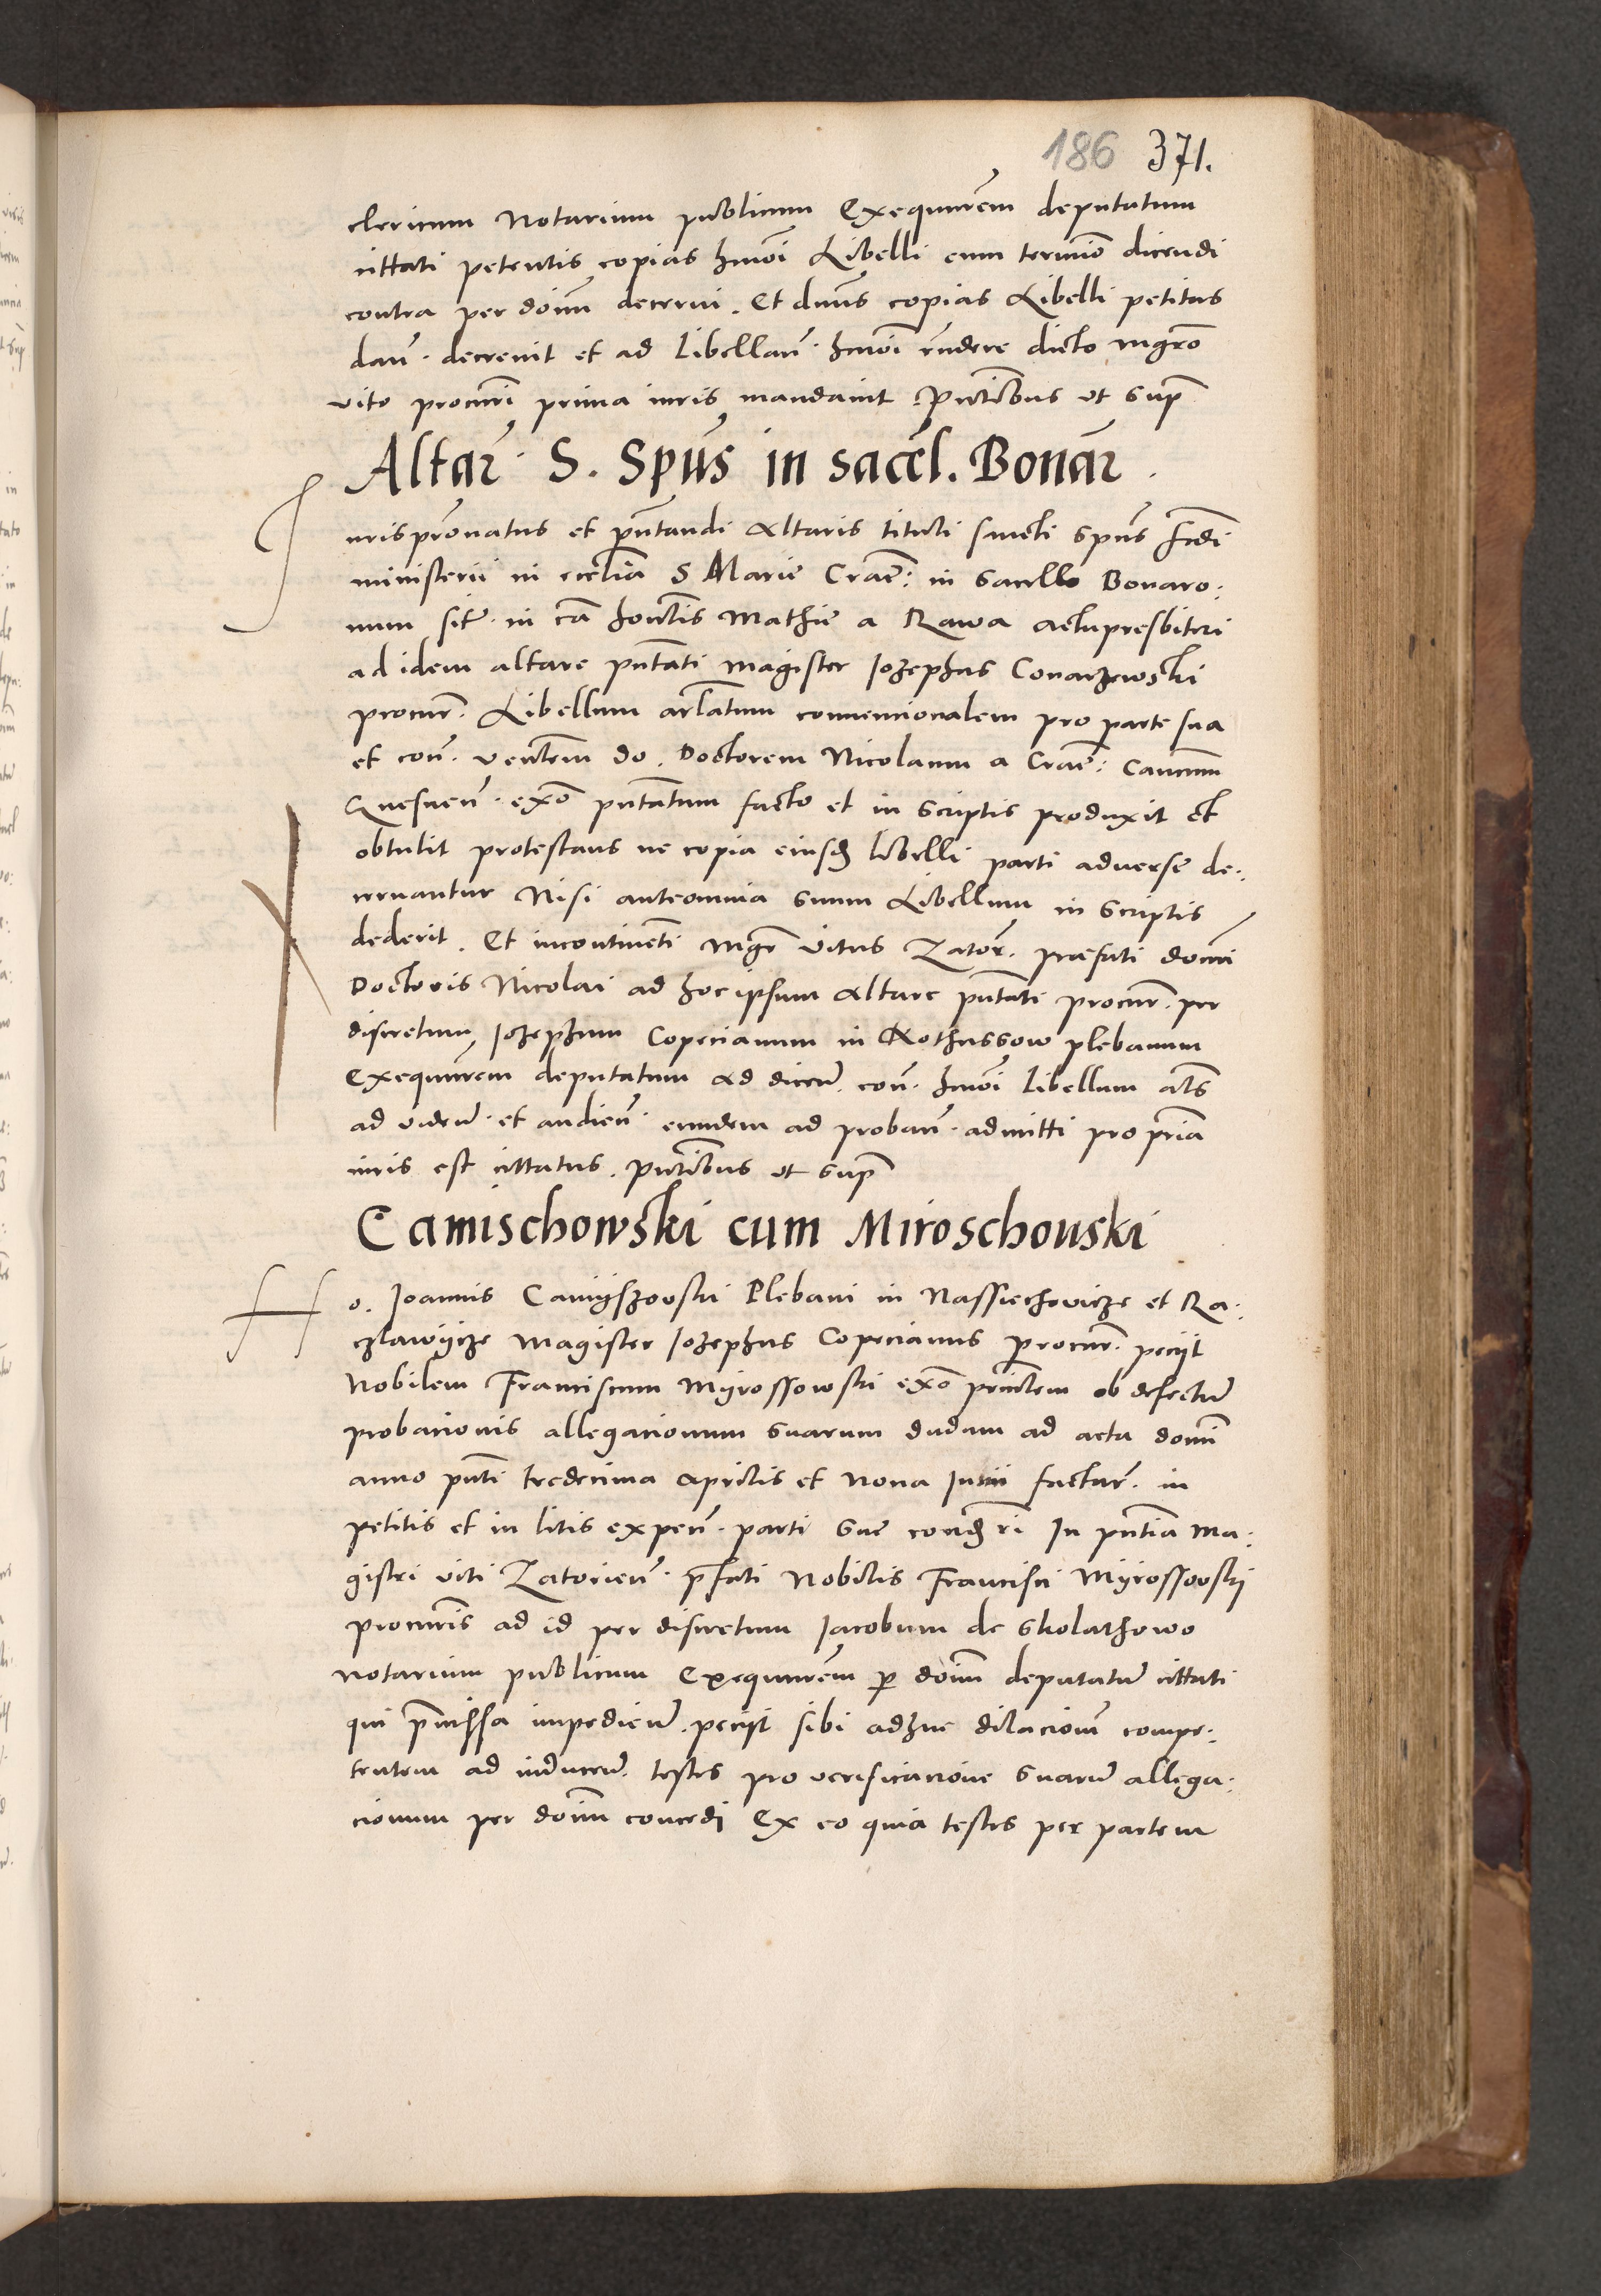 186 371.
clericum Notarium publicum Exequutorem deputatum
cittati petentis copias hmoi Libelli cum termino dicendi
contra per doim decerni. Et dnus copias Libelli petitas
dan̄. decrevit et ad Libellan̄. hmoi rn̄dere dicto mgro
vito procuri prima iuris mandavit. Pn̄tibus ut supra
Altar̄ S. Spūs in sacel. Bonar̄.
Jurispronatus et pn̄tandi Altaris tituli sancti spūs
ministerii in ecclīa S Marie Crac̄: in Sacello Bonaro:
num sit̄. in cā hon̄tis Mathie a Rawa Actupresbiteri
ad idem altare pn̄tati magister Jozephus Conarzewski
procur̄. Libellum arlatum convencionalem pro parte sua
et con̄. ven̄tem do. Doctorem Nicolaum a Crac̄: Canonicum
Gnesnen̄. exo pn̄tatum facto et in scriptis produxit et
obtulit protestans ne copia eiusdem libelli parti adverse de:
cernantur Nisi anteomnia suum Libellum in scriptis
dederit. Et incontinenti mgr̄ Vitus Zator̄. præfati domi
Doctoris Nicolai ad hoc ipsum Altare pn̄tati procur̄. per
discretum Jozephum Copecianum in Rothussow plebanum
Exequutorem deputatum ad dicen̄. con̄. hmoi Libellum als
ad viden̄. et audien̄. eundem ad proban̄. admitti pro prīa
iuris est cittatus. Pn̄tibus ut supra
Camischowski cum Miroschouski
Ho. Joannis Camyszovski Plebani in Nassiechovicze et Ra:
czlawycze Magister Jozephus Copecianus Procur̄. peciit
Nobilem Franciscum Myrossowski exo pn̄tem ob defectum
probacionis allegacionum suarum dudum ad acta domi
anno pn̄ti tredecima Aprilis et Nona Junii factar̄. in
petitis et in litis expen̄. parti sue condemri In pn̄tia Ma:
gistri Viti Zatorien̄. pfati Nobilis Francisci Myrossovski
procuris ad id per discretum Jacobum de Skolathowo
Notarium publicum Exequutorem p doim deputatum cittati
qui pmissa impedien̄. peciit sibi adhuc dilacionem compe:
tentem ad inducen̄. testes pro verificacione suarum allega:
cionum per doim concedi Ex eo quia testes per partem